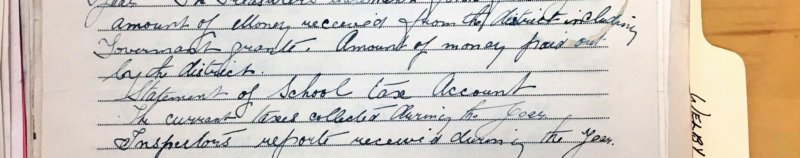 year. The Treasurer's
amount of Money received from the district including
Government grants. Amount of money paid out
by the district.
Statement of School tax Account
The current taxes collected during the Year
Inspectors reports receiv'd during the Year.
WELBY